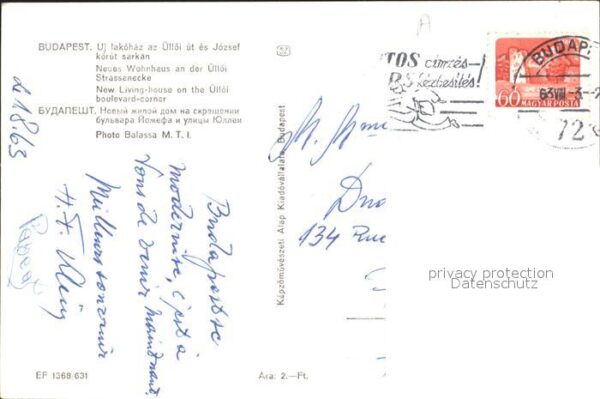 BUDAPEST. Uj lakóház az Üllői út és József
körút sarkán
Neues Wohnhaus an der Üllői
Strassenecke
New Living-house on the Üllői
boulevard-corner
БУДАПЕШТ. Новый жилой дом на скрощении
бульвара Йожефа и улицы Юллеи
Photo Balassa M. T. I.
Budapest se
modernise, c'est à
vous de venir maintenant.
Meilleurs souvenir
EF 1369/631
Ára: 2.–Ft.
Képzőművészeti Alap Kiadóvállalata, Budapest
TOS címzés–
kézbesítés!
60
MAGYAR POSTA
BUDAP
63 VIII -3.-
72
M. Mme
134 Rue
privacy protection
Datenschutz